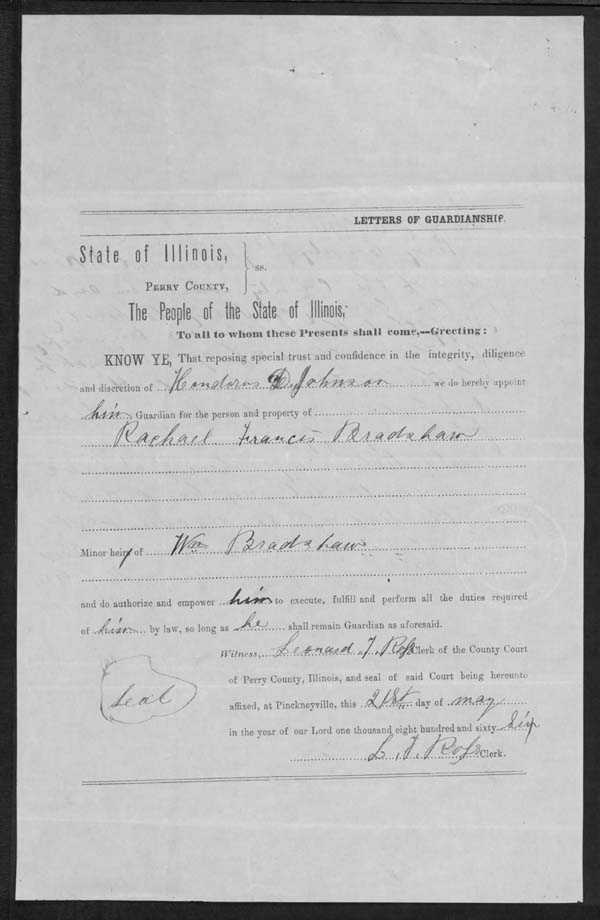 LETTERS OF GUARDIANSHIP.
State of Illinois,
PERRY COUNTY,
ss.
The People of the State of Illinois,
To all to whom these Presents shall come,—Greeting:
KNOW YE, That reposing special trust and confidence in the integrity, diligence
and discretion of Hondorus D. Johnson we do hereby appoint
him Guardian for the person and property of
Rachael Francis Bradshaw
Minor heir of Wm Bradshaw
and do authorize and empower him to execute, fulfill and perform all the duties required
of him by law, so long as he shall remain Guardian as aforesaid.
Witness, Leonard F. Ross Clerk of the County Court
of Perry County, Illinois, and seal of said Court being hereunto
Seal
affixed, at Pinckneyville, this 21st day of may
in the year of our Lord one thousand eight hundred and sixty Six
L. F. Ross Clerk.